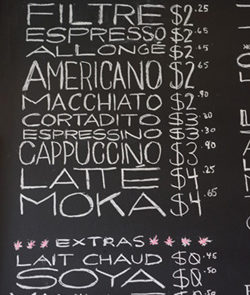 FILTRE $2.25
ESPRESSO $2.65
ALLONGÉ $2.65
AMERICANO $2.65
MACCHIATO $2.90
CORTADITO $3.30
ESPRESSINO $3.30
CAPPUCCINO $3.90
LATTÉ $4.25
MOKA $4.65
EXTRAS
LAIT CHAUD $0.45
SOYA $0.50